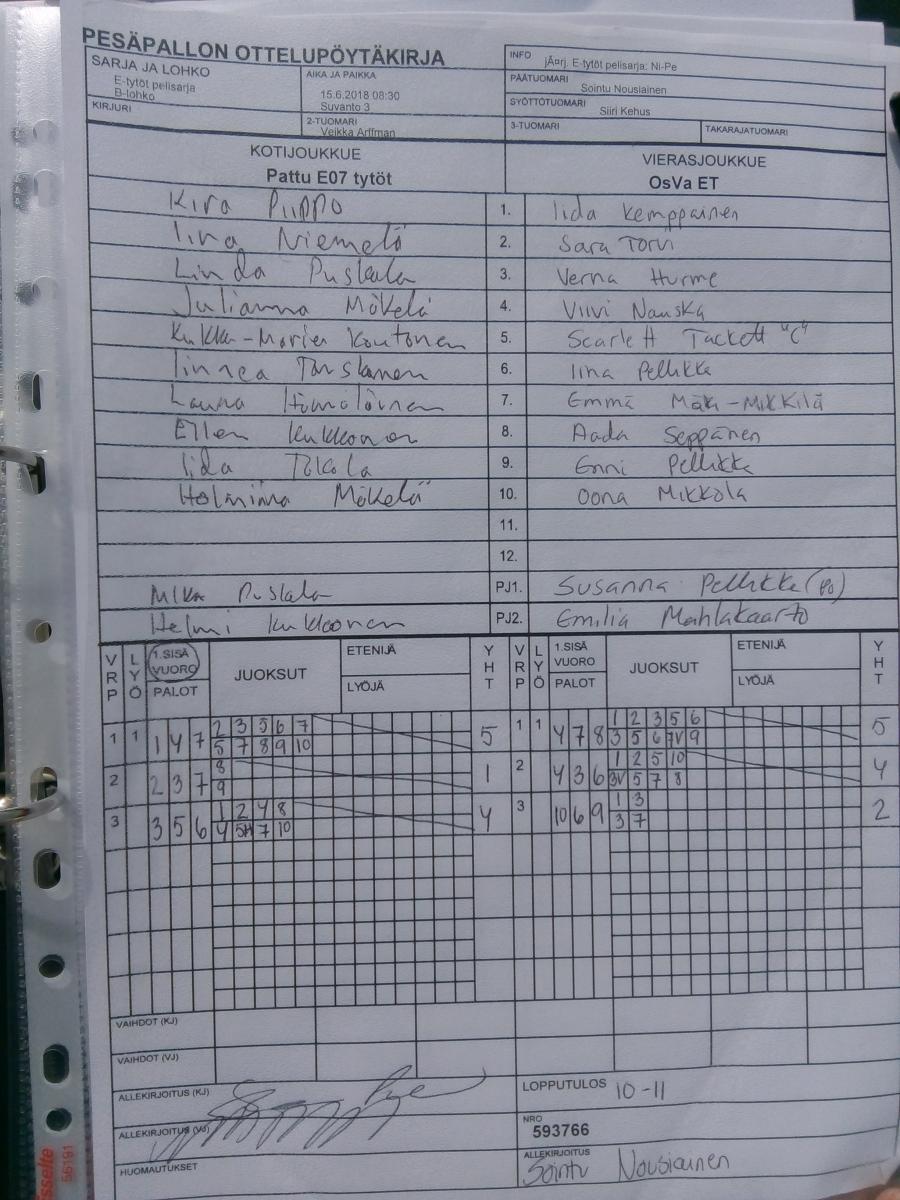 PESÄPALLON OTTELUPÖYTÄKIRJA
SARJA JA LOHKO
E-tytöt pelisarja
B-lohko
KIRJURI
AIKA JA PAIKKA
15.6.2018 08:30
Suvanto 3
2-TUOMARI
Veikka Arffman
INFO jÄ¤rj. E-tytöt pelisarja: Ni-Pe
PÄÄTUOMARI
Sointu Nousiainen
SYÖTTÖTUOMARI
Siiri Kehus
3-TUOMARI TAKARAJATUOMARI
KOTIJOUKKUE VIERASJOUKKUE
Pattu E07 tytöt OsVa ET
Kira Piippo 1. Iida Kemppainen
Iina Niemelä 2. Sara Torvi
Linda Puskala 3. Verna Hurme
Julianna Mäkelä 4. Viivi Nauska
Kukka-Maria Koutonen 5. Scarlett Tackett "C"
Iinnea 6. Iina Pellikka
Launa 7. Emma Mäki-Mikkilä
Ellen Kukkonen 8. Aada Seppänen
Iida Tokola 9. Enni Pellikka
Mäkelä 10. Oona Mikkola
11.
12.
Mika Puskala PJ1. Susanna Pellikka (po)
Helmi Kukkonen PJ2. Emilia Mahlakaarto
VRP LYÖ 1.SISÄ VUORO PALOT JUOKSUT ETENIJÄ LYÖJÄ YHT VRP LYÖ 1.SISÄ VUORO PALOT JUOKSUT ETENIJÄ LYÖJÄ YHT
1 1 1 4 7 2 3 5 6 7 5 1 1 4 7 8 1 2 3 5 6 5
5 7 8 9 10 3 5 6 7V 9
2 2 3 7 8 1 2 4 3 6 1 2 5 10 4
9 3V 5 7 8
3 3 5 6 1 2 4 8 4 3 10 6 9 1 3 2
4 5H 7 10 3 7
VAIHDOT (KJ)
VAIHDOT (VJ)
ALLEKIRJOITUS (KJ)
ALLEKIRJOITUS (VJ)
HUOMAUTUKSET
LOPPUTULOS 10-11
NRO
593766
ALLEKIRJOITUS
Sointu Nousiainen
55191